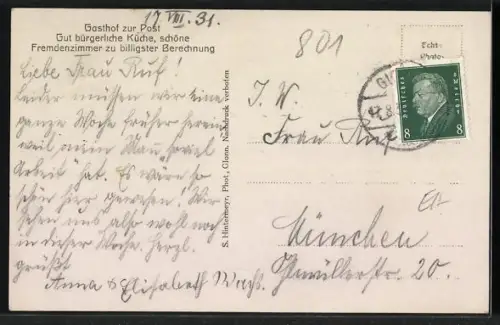 Gasthof zur Post
Gut bürgerliche Küche, schöne
Fremdenzimmer zu billigster Berechnung
17.VIII.31.
Liebe Frau Ruf!
Leider müssen wir eine
ganze Woche früher herein
weil mein Mann soviel
Arbeit hat. Es wäre so
schön hier gewesen! Wir
sehen uns also wohl noch
in dieser Woche. Herzl.
grüßt
Anna & Elisabeth
S. Hintermeyr, Phot., Glonn. Nachdruck verboten
801
Echt-
Photo-
Deutsches Reich
8 8
Frau Ruf
München
20.